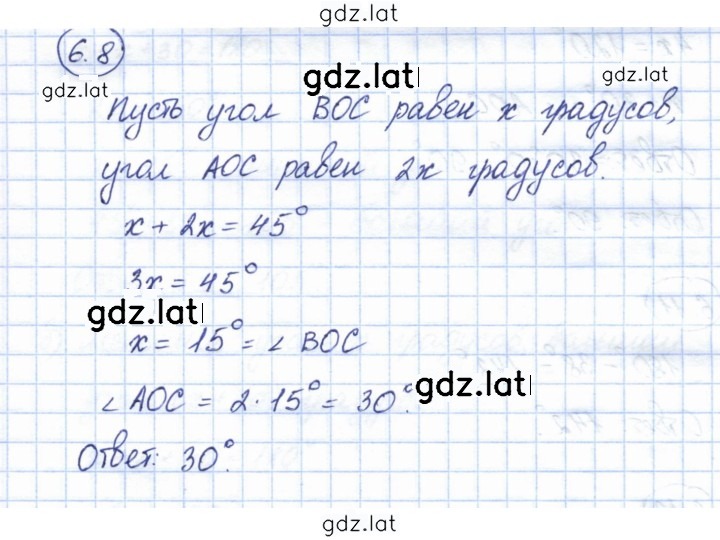 gdz.lat
6.8
gdz.lat
gdz.lat
gdz.lat
Пусть угол BOC равен x градусов,
угол AOC равен 2x градусов.
x + 2x = 45°
3x = 45°
gdz.lat
x = 15° = ∠ BOC
∠ AOC = 2·15° = 30°.
gdz.lat
Ответ: 30°.
gdz.lat